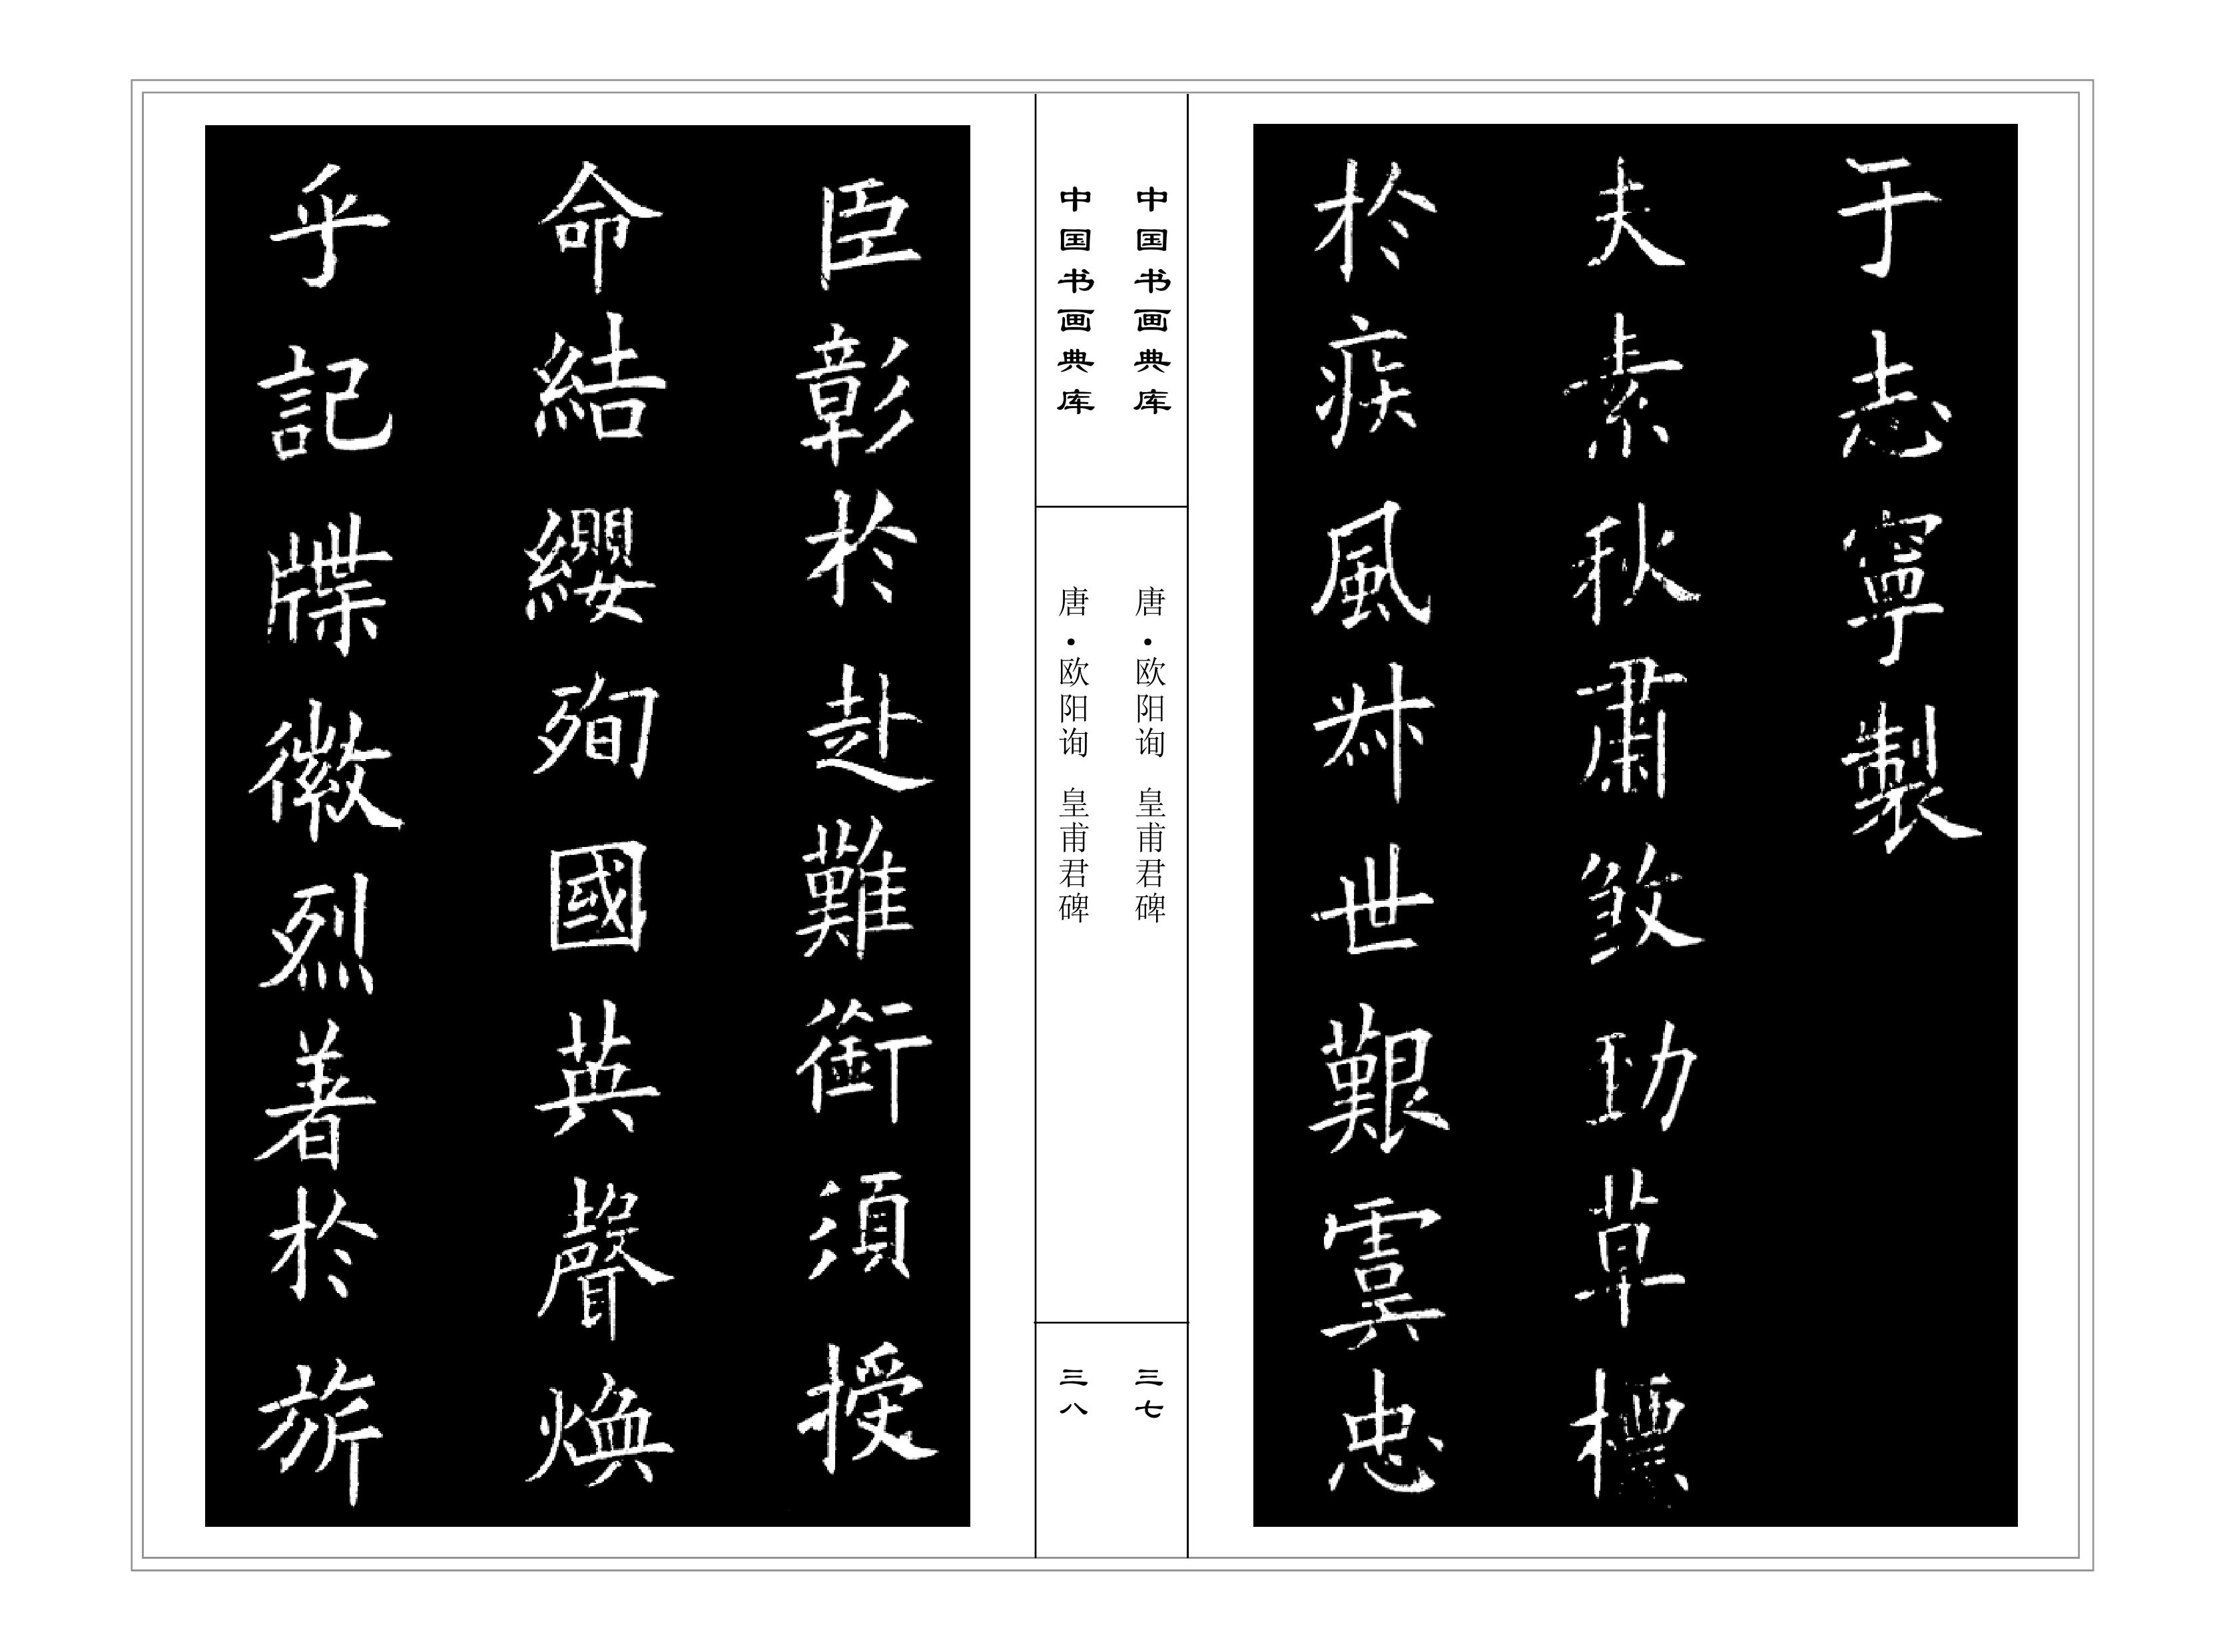 于志寧製
夫素秋肅煞勁草標
於疾風叔世艱虞忠
中国书画典库
唐·欧阳询 皇甫君碑
三七
中国书画典库
唐·欧阳询 皇甫君碑
三八
臣彰於赴難銜須授
命結纓殉國英聲煥
乎記牒徽烈著於旂